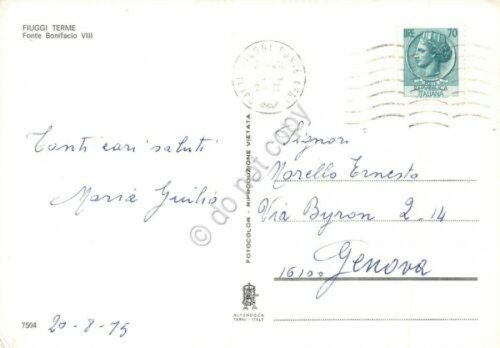 FIUGGI TERME
Fonte Bonifacio VIII
LIRE 70
REPUBBLICA
ITALIANA
Tanti cari saluti
Maria Giulio
20-8-75
7504
FOTOCOLOR - RIPRODUZIONE VIETATA
ALTEROCCA
TERNI - ITALY
Signori
Morello Ernesto
Via Byron 2-14
16100 Genova
© do not copy